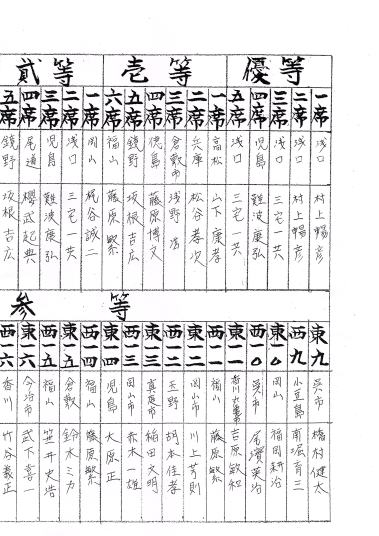 優等
一席 浅口 村上暢彦
二席 浅口 村上暢彦
三席 浅口 三宅一共
四席 児島 難波康弘
五席 浅口 三宅一共
壱等
一席 高松 山下康孝
二席 兵庫 松谷孝次
三席 倉敷市 浅野
四席 徳島 藤原博文
五席 鏡野 坂根吉広
六席 福山 藤原繁
貳等
一席 岡山 梶谷誠二
二席 浅口 三宅一共
三席 児島 難波康弘
四席 尾道 櫻武起典
五席 鏡野 坂根吉広
参等
東九 呉市 橋村健太
西九 小豆島 南堀育三
東一〇 岡山 福岡耕治
西一〇 呉市 尾濱栄治
東一一 香川 吉原敏和
西一一 福山 藤原繁
東一二 岡山市 川上芳則
西一二 玉野 胡本佳孝
東一三 真庭市 稲田文明
西一三 岡山市 赤木一雄
東一四 児島 大原正
西一四 福山 藤原繁
東一五 倉敷 鈴木ミカ
西一五 福山 笠井史浩
東一六 今治市 武下喜一
西一六 香川 竹谷義正